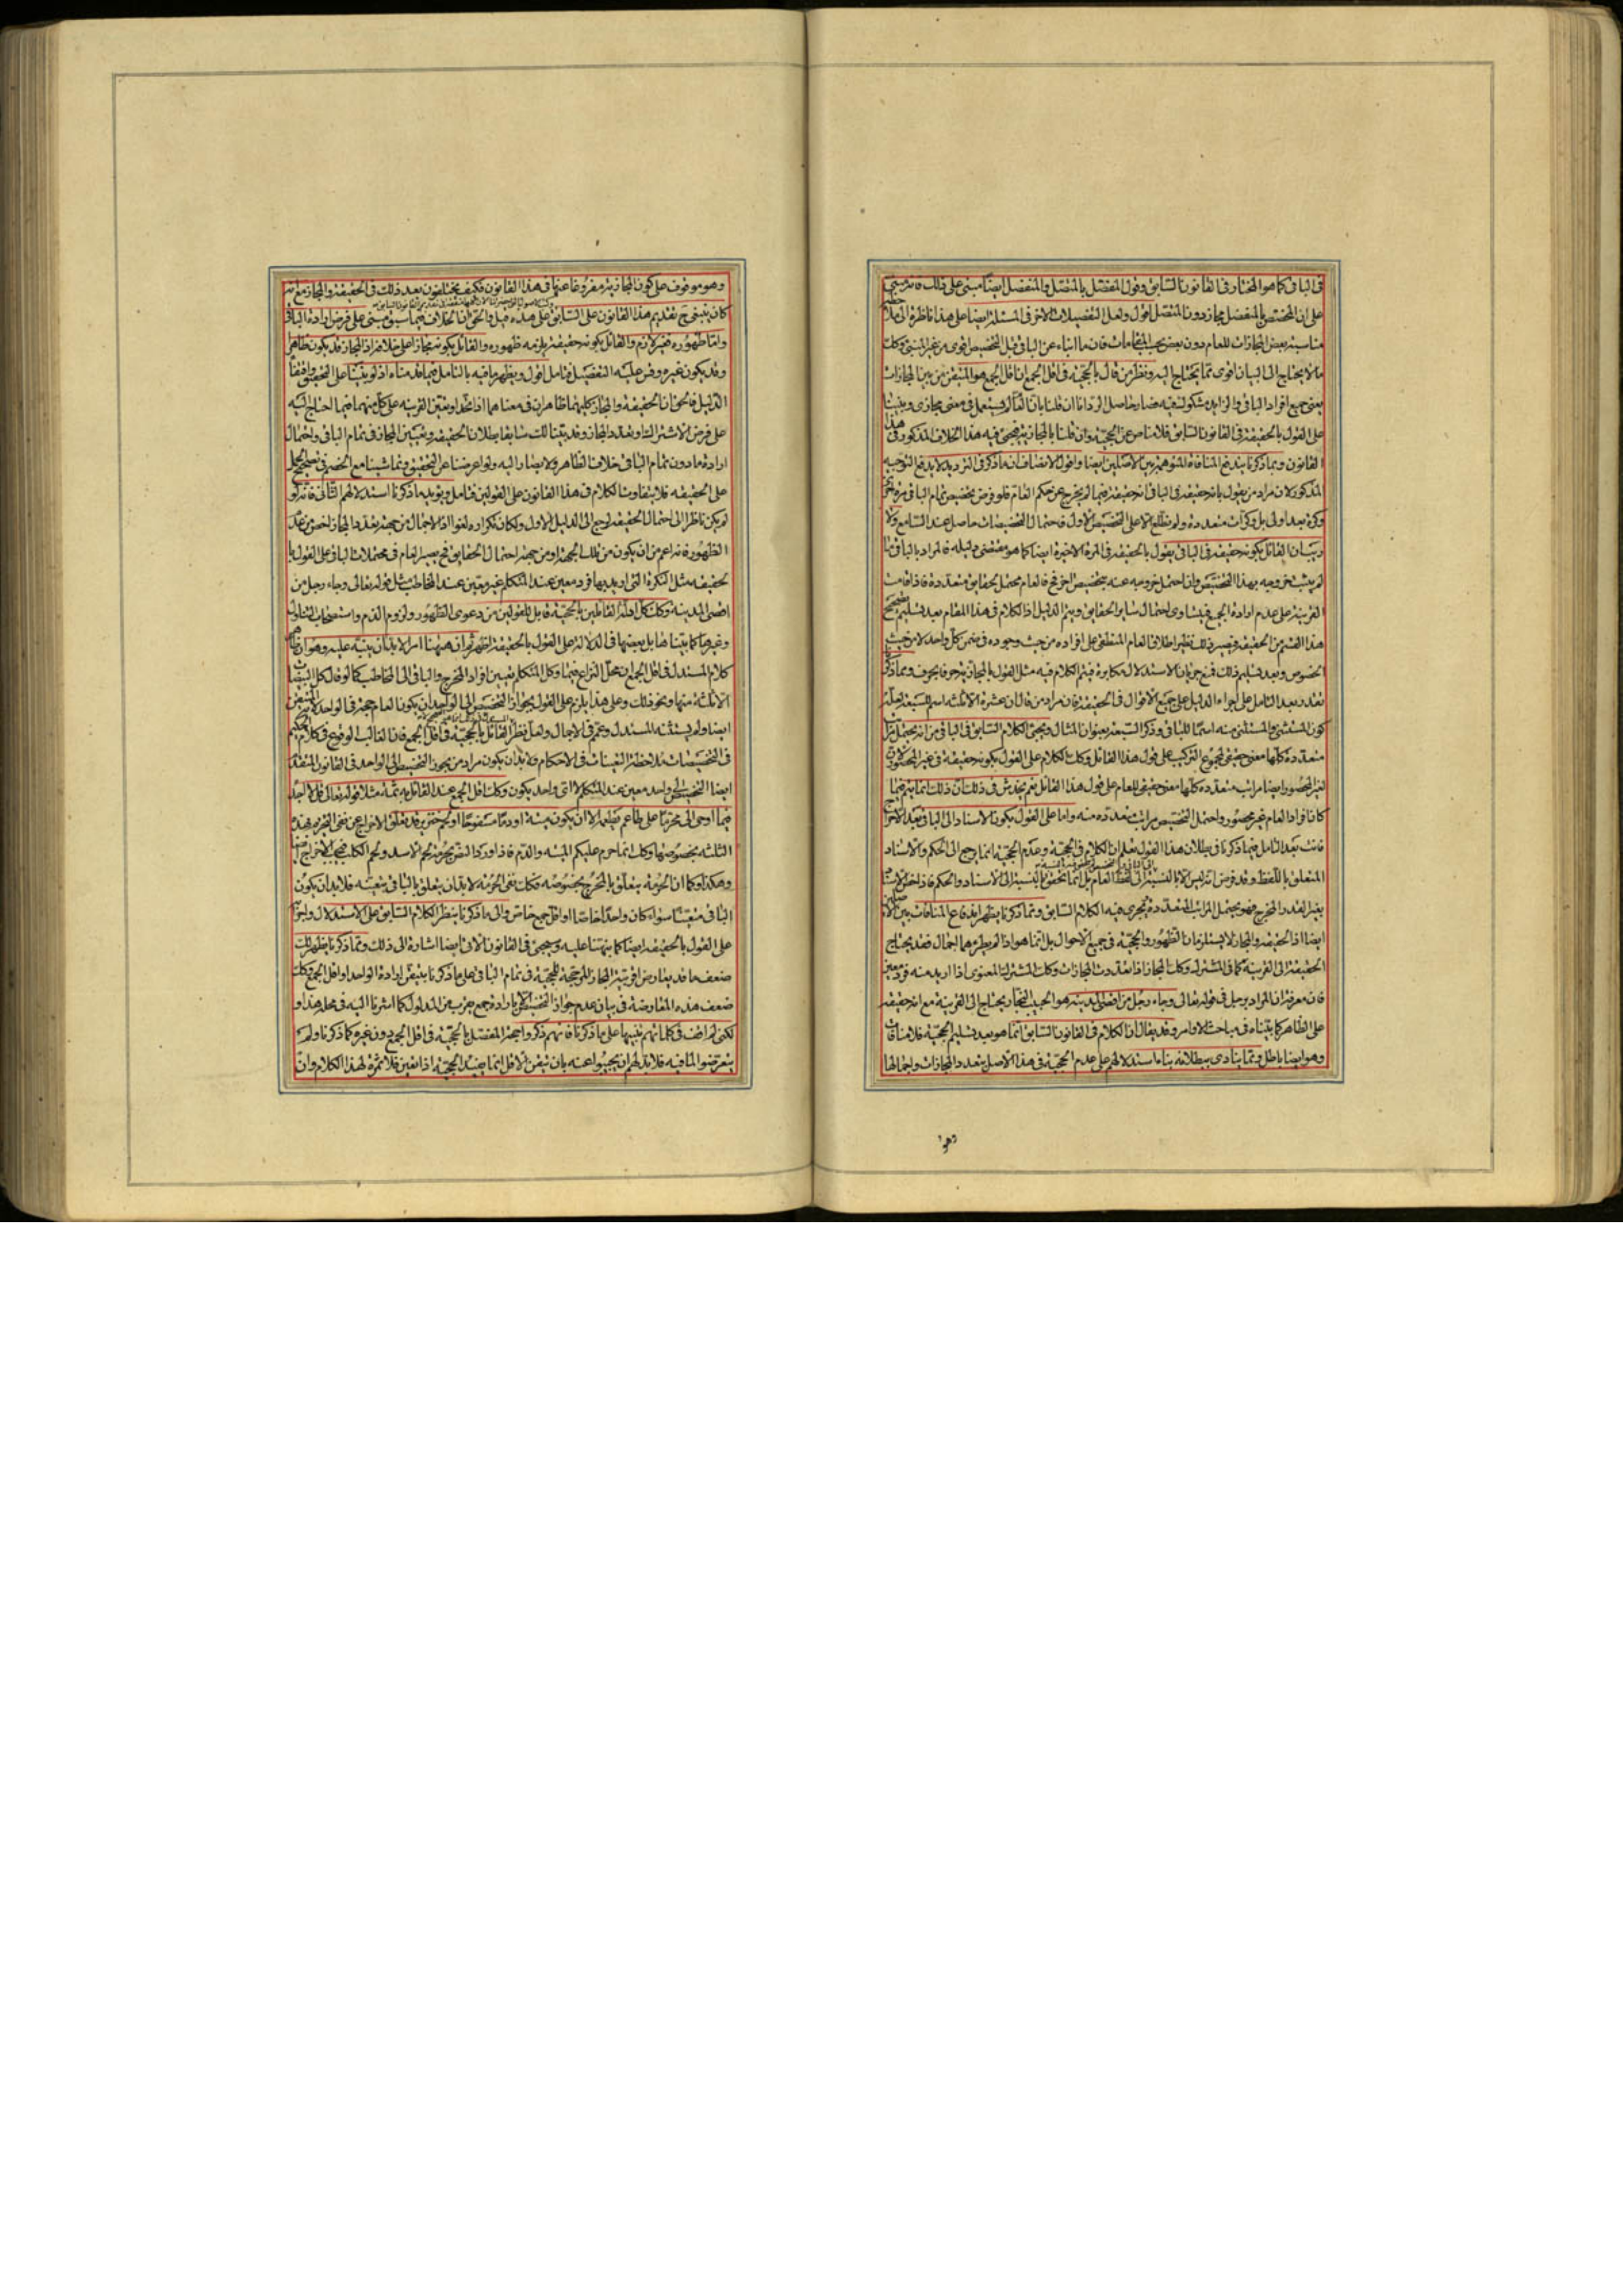 في الباقي كما هو المختار في القانون السابق وقول المفصّل بالمتصل والمنفصل ايضا مبني على ذلك فانه مبني
على ان المختص بالمنفصل مجاز دون المتصل اقول ولعل التفصيلات الاخر في المسئلة ايضا على هذا ناظرة الى
مناسبة بعض المجازات للعام دون بعض بحسب المقامات فان ما انباء عن الباقي قبل التخصيص اقوى من غير المنبئ وكذلك
ما لا يحتاج الى البيان اقوى مما يحتاج اليه ونظر من قال بالحجية في اقل الجمع ان اقل الجمع هو المتيقن من بين المجازات
يعني جميع افراد الباقي والزايد مشكوك فيه فصار حاصل الترديد انا ان قلنا بان العام يستعمل في معنى مجازي وبنينا
على القول بالحقيقة في القانون السابق فلا مناص عن الحجية وان قلنا بالمجازية فيجيء فيه هذا الخلاف المذكور في هذا
القانون وبما ذكرنا يندفع المنافاة المتوهم بين الاصلين ايضا واقول الانصاف ان ما ذكر في الترديد لا يدفع التوجيه
المذكور لان مراد من يقول بانه حقيقة في الباقي انه حقيقة فيما لم يخرج عن حكم العام فلو فرض تخصيص تمام الباقي مرة اخرى
وكرة بعد اولى بل وكرات متعددة ولم نطلع الا على التخصيص الاول فاحتمال التخصيصات حاصل عند السامع ولا
ريب ان القائل بكونه حقيقة في الباقي يقول بالحقيقة في المرة الاخيرة ايضا كما هو مقتضى دليله فالمراد بالباقي ما
لم يثبت خروجه بهذا التخصيص وان احتمل خروجه عنه بتخصيص اخر فح فالعام محتمل لحقايق متعددة فاذا قامت
القرينة على عدم ارادة الجميع فيتساوى احتمال ساير الحقايق ويتم الدليل اذ الكلام في هذا المقام بعد تسليم صحة
هذا القسم من الحقيقة فيصير ذلك نظير اطلاق العام المنطقي على افراده من حيث وجوده في ضمن كل واحد لا من حيث
الخصوص وبعد تسليم ذلك فمنع جريان الاستدلال مكابرة فيتم الكلام فيه مثل القول بالمجازية حرفا بحرف وبما ذكرنا
تقدر بعد التأمل على اجراء الدليل على جميع الاقوال في الحقيقة فان مراد من قال ان عشرة الا ثلثة اسم للسبعة
كون المستثنى والمستثنى منه اسما للباقي وذكر السبعة بعنوان المثال ويجيء الكلام السابق في الباقي من انه يحتمل مراتب
متعددة كلها معنى حقيقي لمجموع التركيب على قول هذا القائل وكذلك الكلام على القول بكونه حقيقة في غير المحصور لان
لغير المحصور ايضا مراتب متعددة كلها معنى حقيقي للعام على قول هذا القائل نعم يخدش في ذلك ان ذلك انما يتم فيما
كان افراد العام غير محصور واحتمل التخصيص مراتب متعددة منه واما على القول بكون الاسناد الى الباقي بعد الاخراج
فانت بعد التأمل فيما ذكرنا في بطلان هذا القول تعلم ان الكلام في الحجية وعدم الحجية انما يرجع الى الحكم والاسناد
المتعلق باللفظ وقد فرض انه ليس الا بالنسبة الى لفظ العام بل انما تحقق بالنسبة الى الاسناد والحكم فاذا اختص الاسناد
بغير القدر المخرج فهو يحتمل المراتب المتعددة فيجري فيه الكلام السابق ومما ذكرنا يظهر اندفاع المنافات بين الاصلين
ايضا اذ الحقيقة والمجاز لا يستلزمان الظهور والحجية في جميع الاحوال بل انما هو اذا لم يطرئهما اجمال فقد يحتاج
الحقيقة الى القرينة كما في المشترك وكذلك المجاز اذا تعددت المجازات وكذلك المشترك المعنوي اذا اريد منه فرد معين
فان معرفة ان المراد برجل في قوله تعالى وجاء رجل من اقصى المدينة هو الحبيب النجار يحتاج الى القرينة مع انه حقيقة
على الظاهر كما بيناه في مباحث الاوامر وقد يقال ان الكلام في القانون السابق انما هو بعد تسليم الحجية فلا منافات
وهو ايضا باطل ومما ينادي ببطلانه بناء استدلالهم على عدم الحجية في هذا الاصل بتعدد المجازات واجمالها
وهو
وهو موقوف على كون المجازية مفروغا عنها في هذا القانون فكيف يختلفون بعد ذلك في الحقيقة والمجاز مع انه
كان ينبغي ح تقديم هذا القانون على السابق على هذه قيل والحق ان الخلاف فيما سبق مبني على فرض ارادة الباقي
واما ظهوره فغير لازم والقائل بكونه حقيقة يلزمه ظهوره والقائل بكونه مجازا على خلافه اذ المجاز قد يكون ظاهرا
وقد يكون غيره وفرّع عليه التفصيل فتأمل اقول ويظهر ما فيه بالتأمل فيما قدمناه اذ لو بنينا على التحقيق وافقنا
الدليل فالحق ان الحقيقة والمجاز كليهما ظاهران في معناهما اذا اتحدا وتعين القرينة على كل منهما فيما احتاج اليه
على فرض الاشتراك وتعدد المجاز وقد بينا لك سابقا بطلان الحقيقة وتعيين المجاز في تمام الباقي واحتمال
ارادة ما دون تمام الباقي خلاف الظاهر ولا يصار اليه ولو اعرضنا عن التحقيق وتماشينا مع الخصم في تصحيح الحمل
على الحقيقة فلا يتفاوت الكلام في هذا القانون على القولين فتأمل ويؤيد ما ذكرنا استدلالهم الثاني فانه لو
لم يكن ناظرا الى احتمال الحقيقة لرجع الى الدليل الاول ولكان تكراره لغوا اذ الاجمال من جهة تعدد المجاز اخص من عدم
الظهور فانه اعم من ان يكون من تلك الجهة او من جهة احتمال الحقايق فح يصير العام في محتملات الباقي على القول بالـ
حقيقة مثل النكرة التي اريد بها فرد معين عند المتكلم غير معين عند المخاطب مثل قوله تعالى وجاء رجل من
اقصى المدينة وكذلك كل ادلة القائلين بالحجية قابل للقولين من دعوى الظهور ولزوم الذم واستصحاب التناول
وغيرها كما بيناها بل بعضها في الدلالة على القول بالحقيقة اظهر ثم ان ههنا امر لا بد ان ينبه عليه وهو ان ظاهر
كلام المستدل في اقل الجمع ان محل النزاع فيما وكل المتكلم تعيين افراد المخرج والباقي الى المخاطب كما لو قال كل البيضات
الا ثلثة منها ونحو ذلك وعلى هذا يلزم على القول بجواز التخصيص الى الواحد ان يكون العام حجة في الواحد لانه المتيقن
ايضا ولم يستثنه المستدل وعمم في الاجمال ولعل نظر القائل بالحجية في اقل الجمع فان الغالب الوقوع في كلام الحكيم
في التخصيصات ملاحظة التعينات في الاحكام ولا بد ان يكون مراد من يجوز التخصيص الى الواحد في القانون المتقدم
ايضا التخصيص الى واحد معين عند المتكلم لا اي واحد يكون وكذلك اقل الجمع عند القائل به ثمة مثلا قوله تعالى قل لا اجد
فيما اوحي الي محرما على طاعم يطعمه الا ان يكون ميتة او دما مسفوحا او لحم خنزير قد تعلق الاخراج عن نفي التحريم بهذه
الثلثة بخصوصها وكذلك انما حرم عليكم الميتة والدم فاذا ورد النص بحرمة لحم الاسد ولحم الكلب فيجب الاخراج ايضا
وهكذا وكما ان الحرمة يتعلق بالمخرج بخصوصه فكذلك نفي الحرمة لا بد ان يتعلق بالباقي بتعينه فلا بد ان يكون
الباقي متعينا سواء كان واحدا خاصا او اقل جمع خاص والى ما ذكرنا ينظر الكلام السابق على الاستدلال واجراؤه
على القول بالحقيقة ايضا كما نبهنا عليه وسيجيء في القانون الاتي ايضا اشارة الى ذلك ومما ذكرنا يظهر لك
ضعف ما قد يعارض اقربية المجاز الموجبة للحجية في تمام الباقي على ما ذكرنا بتيقن ارادة الواحد او اقل الجمع وكذلك
ضعف هذه المعارضة في بيان عدم جواز التخصيص الا بارادة جمع يقرب من المدلول كما اشرنا اليه في محله هذا و
لكني لم اقف في كلماتهم تنبيها على ما ذكرنا فانهم ذكروا حجة المفصل بالحجية في اقل الجمع دون غيره كما ذكرنا ولم
يتعرضوا لما فيه فلا بد لهم ان يجيبوا عنه بان تيقن الاقل انما يفيد الحجية اذا تعين فلا ثمرة لهذا الكلام وان